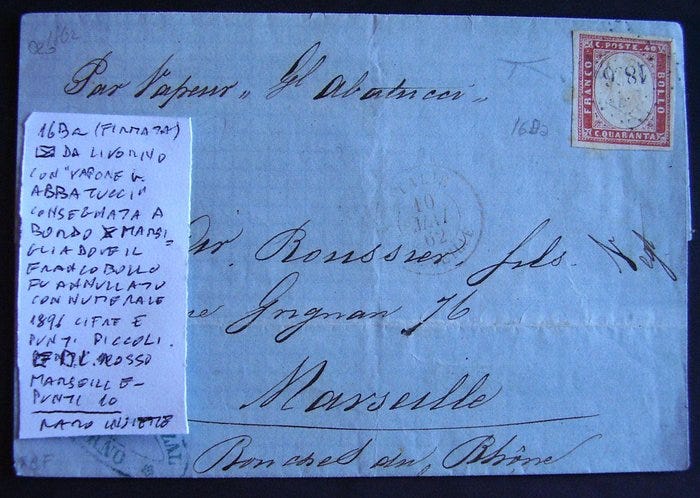 1862
Par Vapeur „ Gl Abatucci „
C. POSTE. 40
FRANCO
BOLLO
C. QUARANTA
16Ba
16Ba (FIRMATA)
DA LIVORNO
CON "VAPORE G.
ABBATUCCI"
CONSEGNATA A
BORDO X MARSI=
GLIA DOVE IL
FRANCOBOLLO
FU ANNULLATO
CON NUMERALE
1896 CIFRE E
PUNTI PICCOLI.
ROSSO
MARSEILLE-
PUNTI 10
RARO INSIEME
10
MAI
62
Roussier fils.
Grignan 76
Marseille
Bouches du Rhône